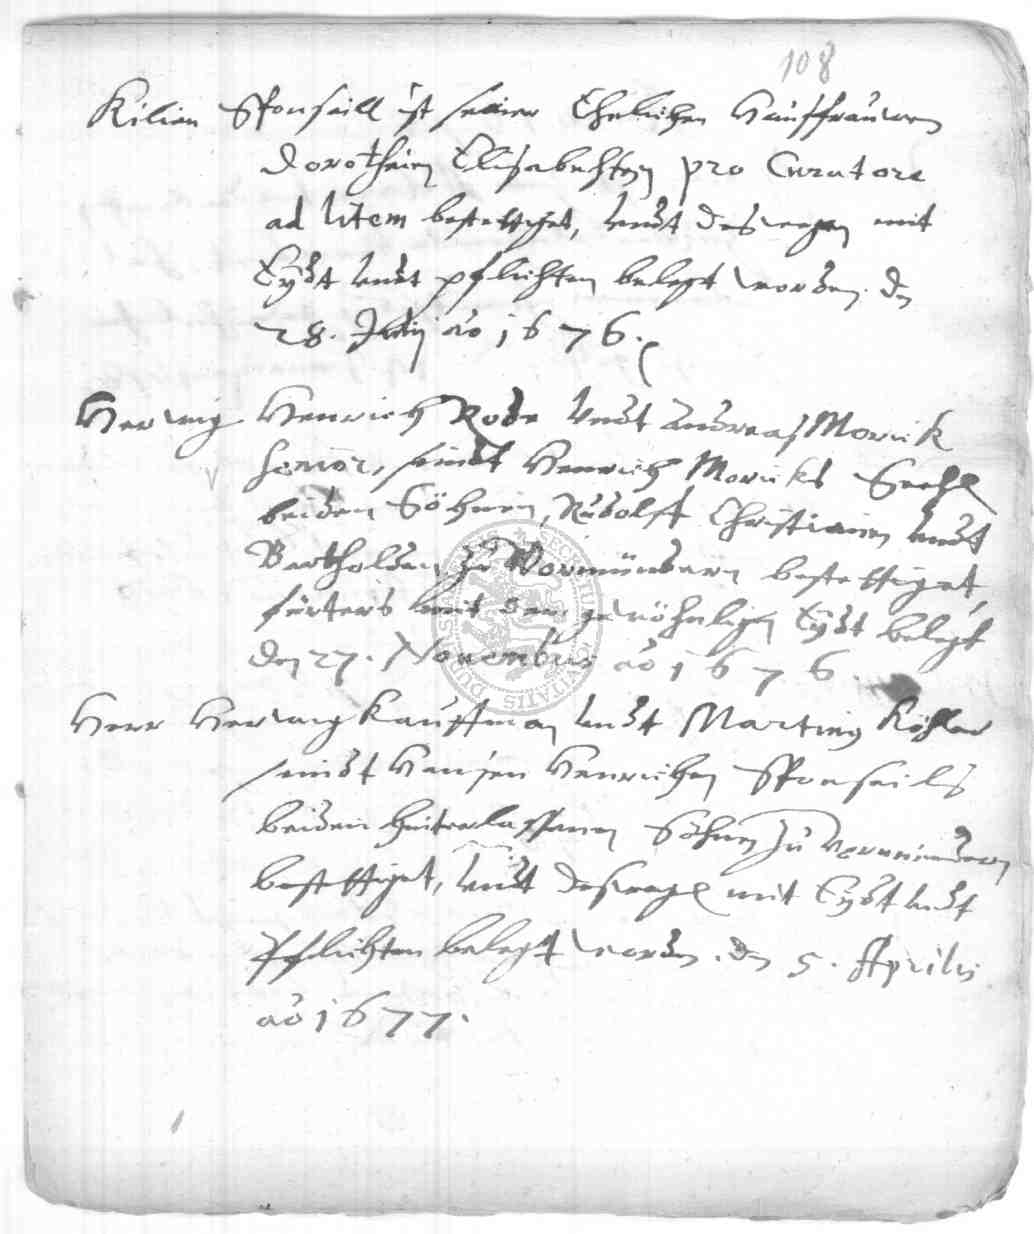 108
Kilian Sponseill ist seiner Ehelichen Haussfrauwen
Dorotheien Elisabethen pro Curatore
ad litem bestettiget, undt deswegen mit
Eydt undt pflichten belegt worden. den
28. Junij ao 1676.
Herwig Henrich Rode undt Andreas Morick
senior, seindt Henrich Moricks Seehl
beiden Söhnen, Rudolff Christianen undt
Bertholden, zu Vormündern bestettiget,
fürters mit dem gewöhnligen Eydt belegt
den 27. Novembris ao 1676.
Herr Herwig Kauffman undt Martinus Köhler
seindt Hansen Henrichen Sponseils
beiden hinterlassenen Söhnen zu Vormündern
bestettiget, undt deswegen mit Eydt undt
Pflichten belegt worden. den 5. Aprilis
ao 1677.